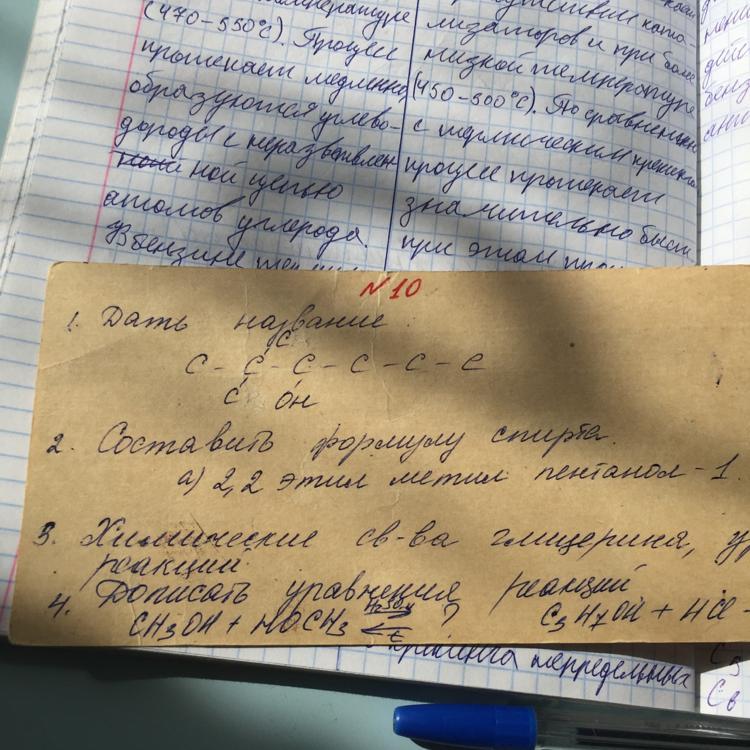 (470-550°С). Процесс
протекает медленно,
образуются углево-
дороды с неразветвлен
ной цепью
атомов углерода.
В бензине
лизаторов и при более
низкой температуре
(450-500°С). По сравнению
с термическим крекинг
процесс протекает
значительно быст
при этом
N10
1. Дать название
С
С - С - С - С - С - С
С ОН
2. Составить формулу спирта.
а) 2,2 этил метил пентанол-1.
3. Химические св-ва глицерина, ур
реакций
4. Дописать уравнения реакций
CH3OH + HOCH3 H2SO4 ⇄ t ? C3H7OH + HCl
крекинга перредельных